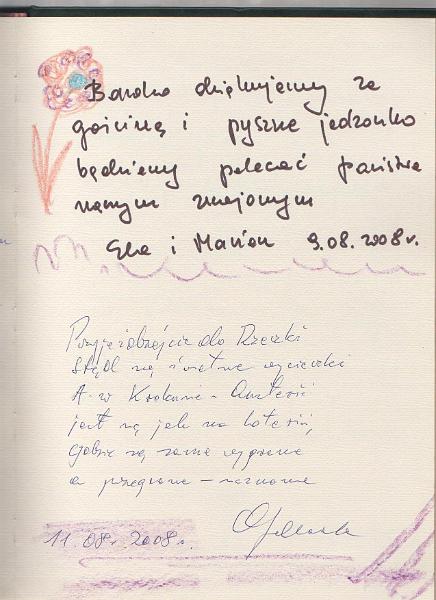 Bardzo dziękujemy za
gościnę i pyszne jedzonko
będziemy polecać państwa
naszym znajomym
Ela i Marian 9.08.2008r.
Przyjeżdżajcie do Rzeczki
Stąd są świetne wycieczki
A w Krokusie -
jest się jak na loterii,
gdzie są same wygrane
a przegrane - nieznane
11.08.2008r.